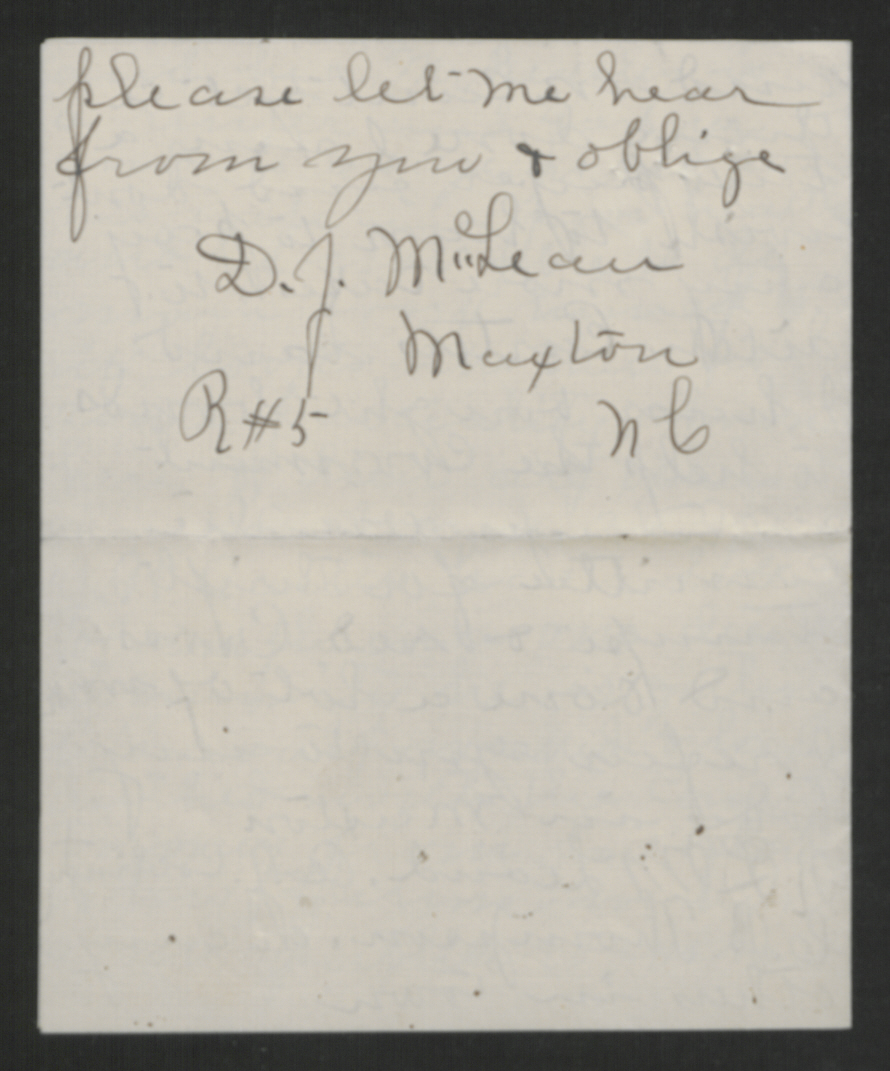 please let me hear
from you & oblige
D. J. McLean
Maxton
R#5 NC